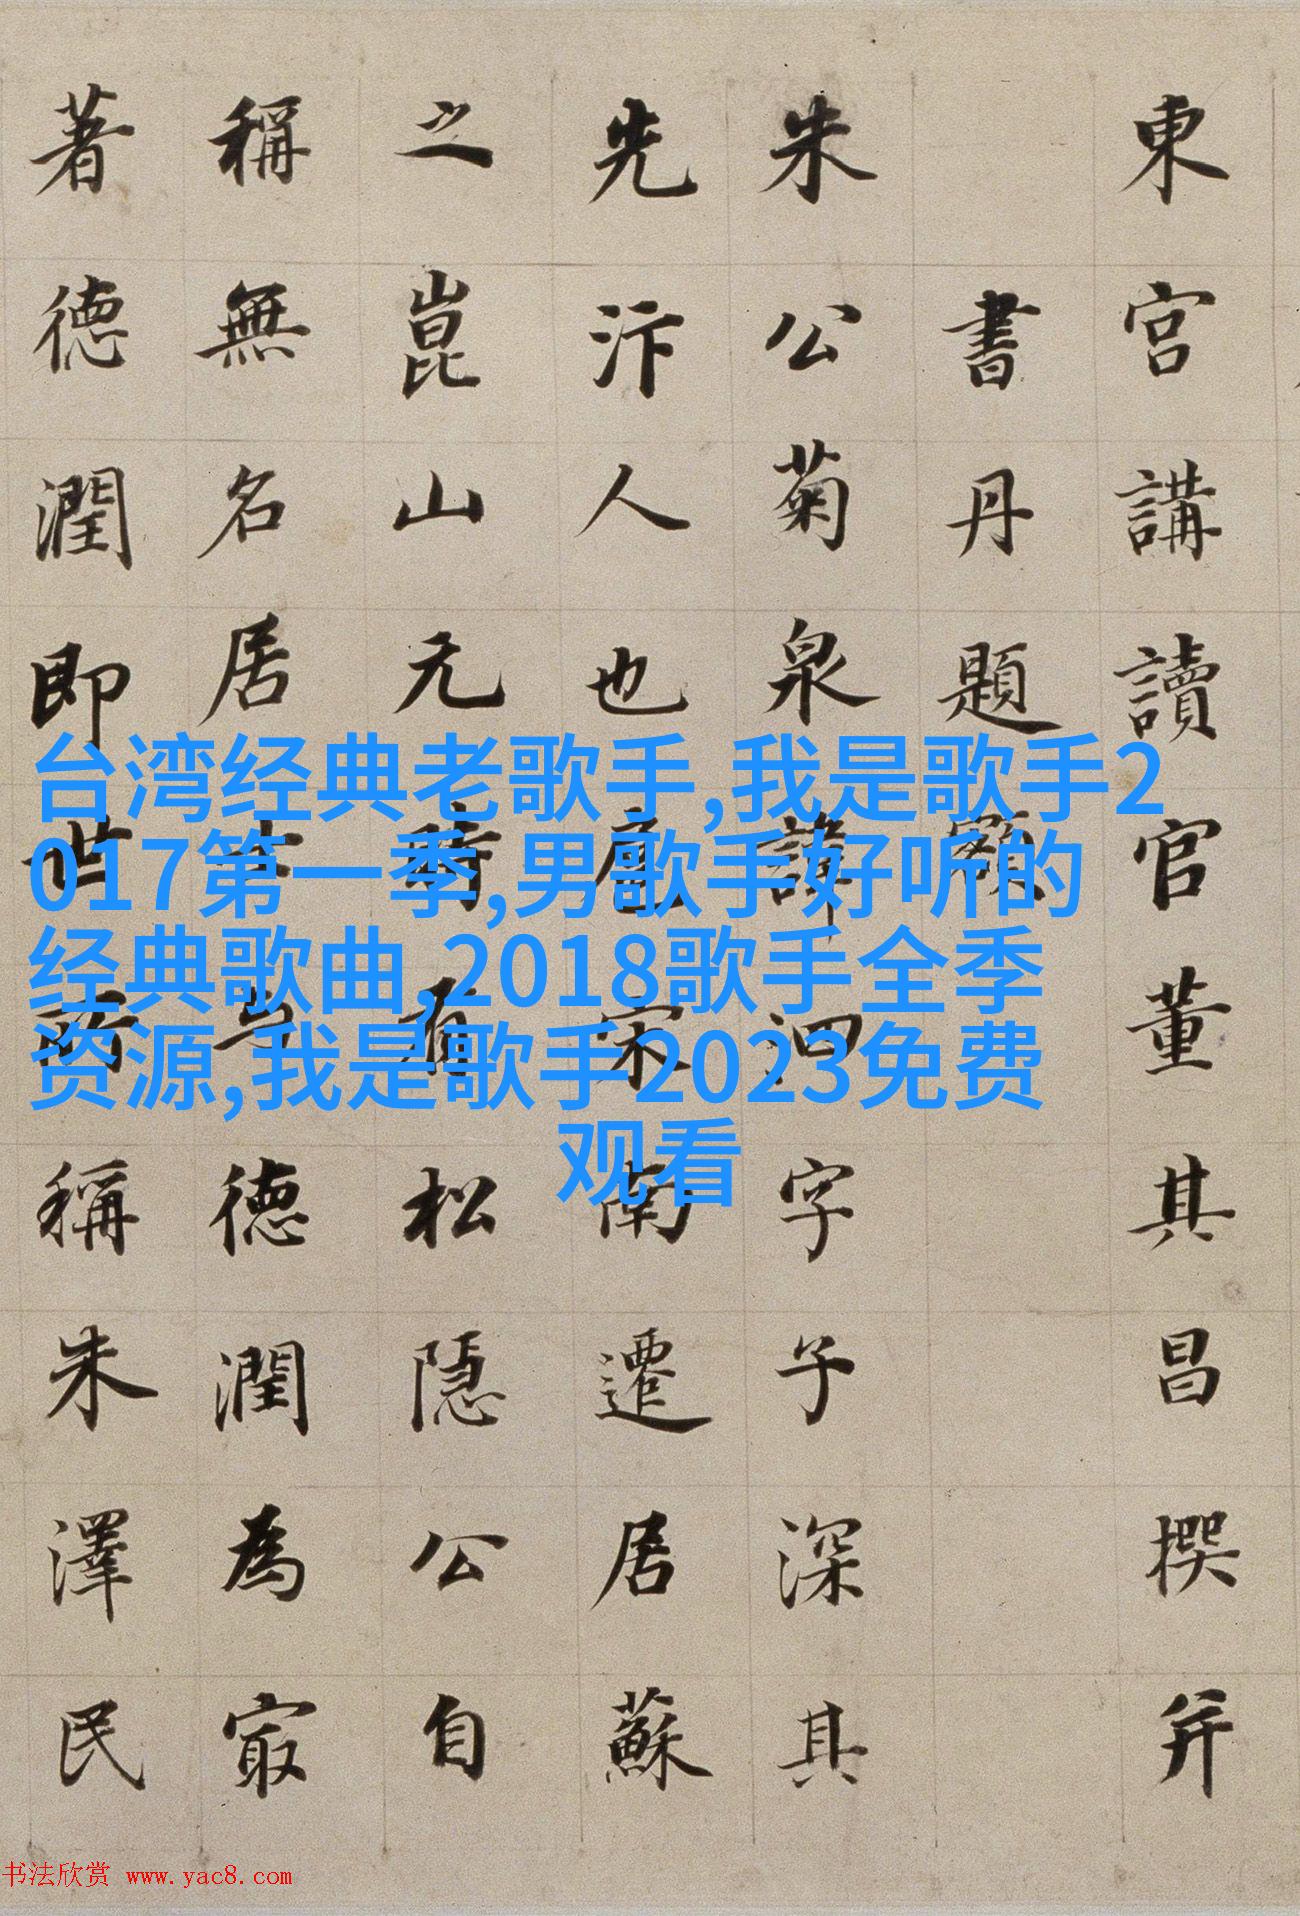 東宮講讀官董其昌撰并
書丹題額
朱公菊泉諱泗字子深其
先汴人也扈宋南遷居蘇
之崑山元時有松隱公自
稱無名居士与德潤為㝡
著德潤即世所稱朱澤民
台湾经典老歌手,我是歌手2
017第一季,男歌手好听的
经典歌曲,2018歌手全季
资源,我是歌手2023免费
观看
书法欣赏 www.yac8.com